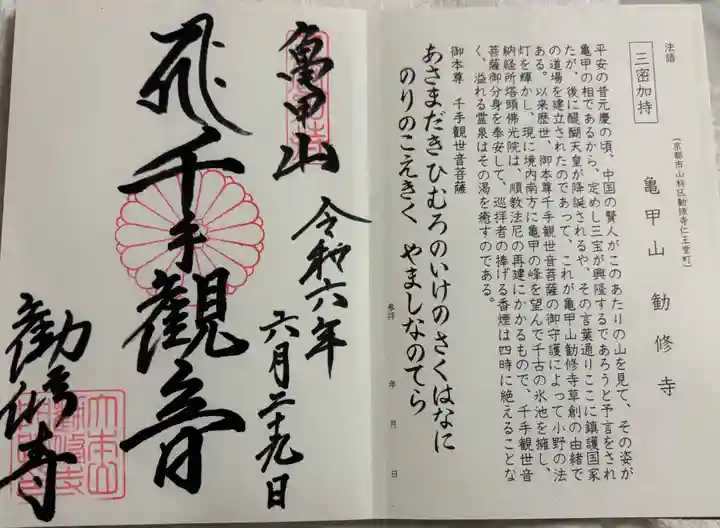 法語
三密加持
(京都市山科区勧修寺仁王堂町)
亀甲山 勧修寺
平安の昔元慶の頃、中国の賢人がこのあたりの山を見て、その姿が
亀甲の相であるから、定めし三宝が興隆するであろうと予言をされ
たが、後に醍醐天皇が降誕されるや、その言葉通りここに鎮護国家
の道場を建立されたのであって、これが亀甲山勧修寺草創の由緒で
ある。以来歴世、御本尊千手観世音菩薩の御守護によって小野の法
灯を輝かし、現に境内南方に亀甲の峰を望んで千古の氷池を擁し、
納経所塔頭佛光院は、順教法尼の再建にかかるもので、千手観世音
菩薩御分身を奉安して、巡拝者の捧げる香煙は四時に絶えることな
く、溢れる霊泉はその渇を癒すのである。
御本尊 千手観世音菩薩
あさまだきひむろのいけのさくはなに
のりのこえきく やましなのてら
参拝 年 月 日
亀甲山
令和六年
六月二十九日
千手観音
勧修寺
大本山